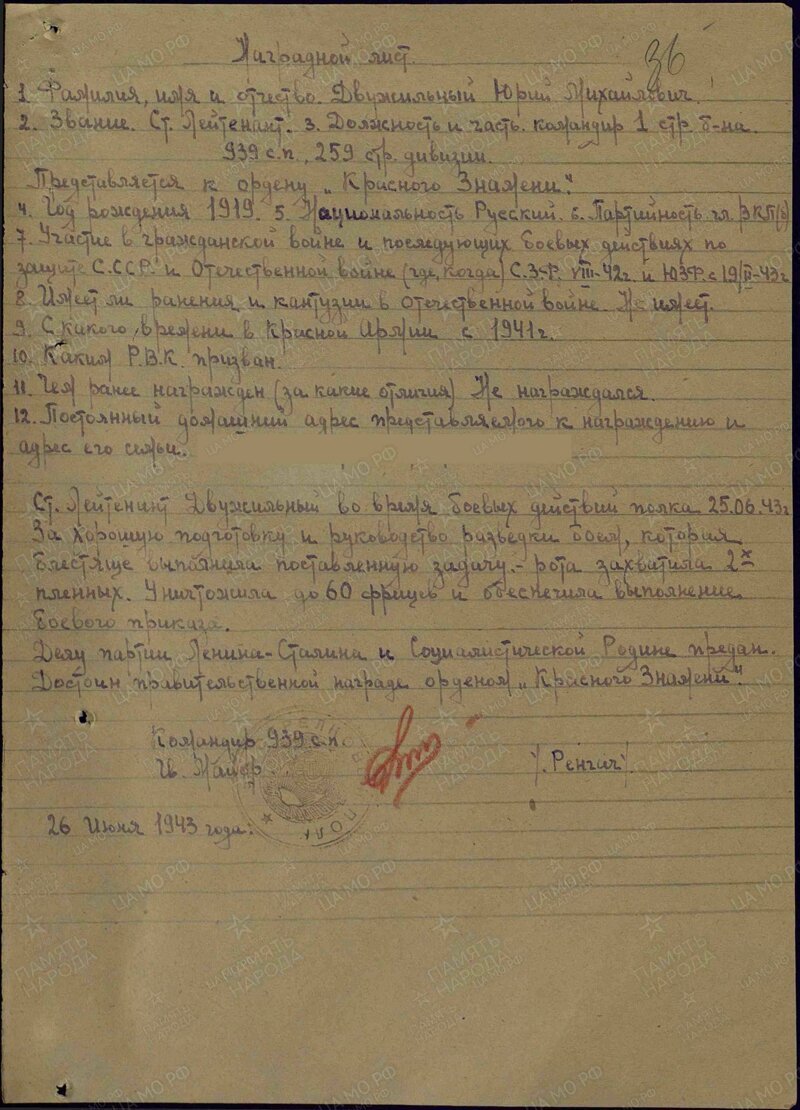 36
Наградной лист.
1. Фамилия, имя и отчество. Двужильный Юрий Михайлович.
2. Звание. Ст. Лейтенант. 3. Должность и часть. командир 1 стр. б-на.
939 с.п., 259 стр. дивизии.
Представляется к ордену „Красного Знамени".
4. Год рождения 1919. 5. Национальность Русский. 6. Партийность чл. ВКП(б)
7. Участие в гражданской войне и последующих боевых действиях по
защите С.ССР. и Отечественной войне (где, когда) С.З.Ф. VIII-42г. и ЮЗФ. с 19/II-43г
8. Имеет ли ранения и кантузии в Отечественной войне. Не имеет.
9. С какого времени в Красной Армии с 1941г.
10. Каким Р.В.К. призван.
11. Чем ранее награжден (за какие отличия) Не награждался.
12. Постоянный домашний адрес представляемого к награждению и
адрес его семьи.
Ст. Лейтенант Двужильный во время боевых действий полка 25.06.43г
За хорошую подготовку и руководство разведки боем, которая
блестяще выполнила поставленную задачу. – рота захватила 2х
пленных. Уничтожила до 60 фрицев и обеспечила выполнение
боевого приказа.
Делу партии Ленина-Сталина и Социалистической Родине предан.
Достоин правительственной награде орденом „Красного Знамени".
Командир 939 с.п.
Гв. Майор /. Ренгач/
26 Июня 1943 года.
ПАМЯТЬ НАРОДА
ЦАМО.РФ